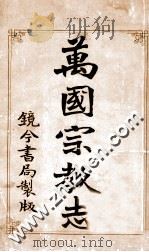 萬國宗教志
鏡今書局製版
www.mtoou.info